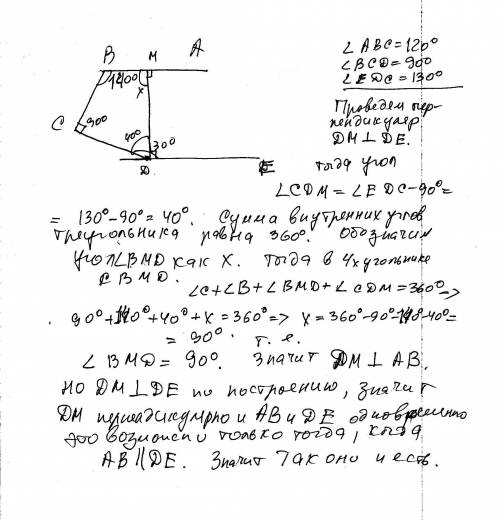 B M A
140°
x
C 90°
40° 30°
D E
∠ABC=120°
∠BCD=90°
∠EDC=130°
Проведем пер-
пендикуляр
DM⊥DE.
тогда угол
∠CDM=∠EDC-90°=
= 130°-90°=40°. Сумма внутренних углов
треугольника равна 360°. Обозначим
угол∠BMD как X. Тогда в 4хугольнике
CBMD.
∠C+∠B+∠BMD+∠CDM=360°=>
90°+140°+40°+x=360°=> x=360°-90°-140°-40°=
= 90°. т.е.
∠BMD=90°. Значит DM⊥AB.
но DM⊥DE по построению, значит
DM перпендикулярно и AB и DE одновременно
это возможно только тогда, когда
AB∥DE. Значит так они и есть.